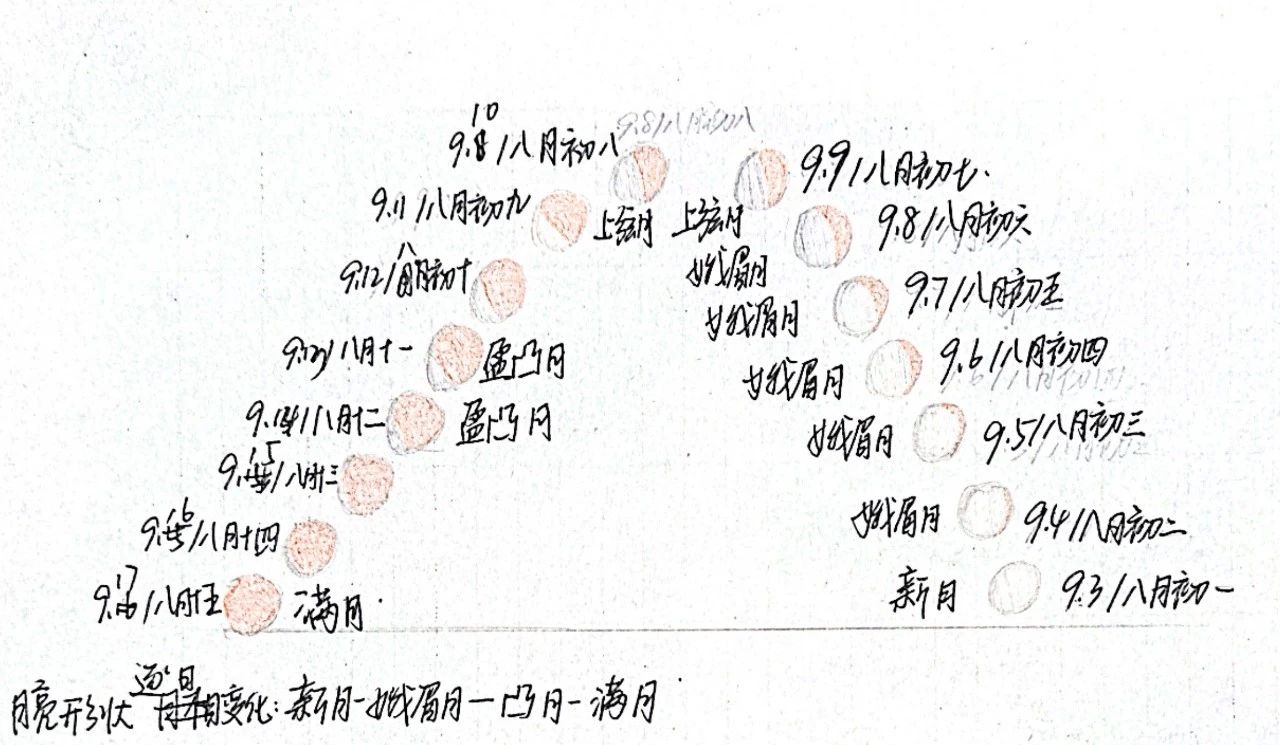 10
9.8/八月初八
9.8/八月初八
9.9/八月初七.
9.11/八月初九
上弦月
上弦月
9.8/八月初六
9.12/八月初十
娥眉月
9.7/八月初五
娥眉月
9.13/八月十一
盈凸月
娥眉月
9.6/八月初四
9.14/八月十二
盈凸月
娥眉月
9.5/八月初三
9.15/八月十三
9.16/八月十四
娥眉月
9.4/八月初二
9.17/八月十五
满月.
新月
9.3/八月初一
月亮形状逐日变化:新月-娥眉月-凸月-满月